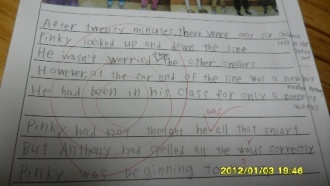 After twenty minutes, there were only six children
left in the
Pinky looked up and down the line
He wasn't worried the other spellers
However, at the far end of the line was a new boy
named Anthony
He had been in his class for only a couple of
weeks
was
Pinky had not thought he all that smart
But Anthony had spelled all the words correctly
Pinky was beginning to
2012/01/03 19:46